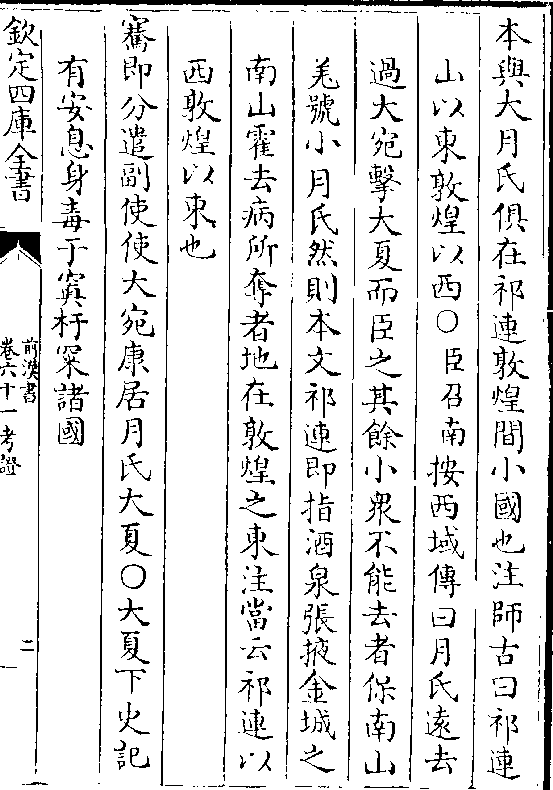 本與大月氏俱在祁連敦煌間小國也注師古曰祁連
山以東敦煌以西〇臣召南按西域傳曰月氏遠去
過大宛擊大夏而臣之其餘小衆不能去者保南山
羌號小月氏然則本文祁連即指酒泉張掖金城之
南山霍去病所奪者地在敦煌之東注當云祁連以
西敦煌以東也
騫即分遣副使使大宛康居月氏大夏〇大夏下史記
有安息身毒于窴杅罙諸國
欽定四庫全書
前漢書
卷六十一考證
二